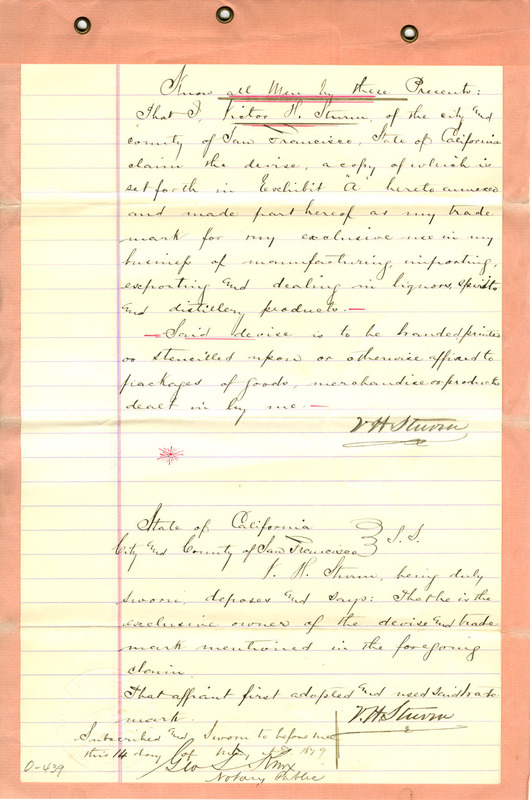 Know all Men by these Presents:
That I, Victor H. Sturm, of the city and
county of San Francisco, State of California
claim the devise, a copy of which is
set forth in Exhibit "A" hereto annexed
and made part hereof as my trade
mark for my exclusive use in my
business of manufacturing, importing,
exporting and dealing in liquors, spirits
and distillery products.—
—Said devise is to be branded, printed
or stencilled upon or otherwise affixed to
packages of goods, merchandise or products
dealt in by me.—
V. H. Sturm
State of California
City and County of San Francisco } S.S.
V. H. Sturm, being duly
sworn, deposes and says: That he is the
exclusive owner of the devise and trade
mark mentioned in the foregoing
claim.
That affiant first adopted and used said trade
mark.
V. H. Sturm
Subscribed and Sworn to before me
this 14 day of May 1879
Geo T. Knox
Notary Public
0-439